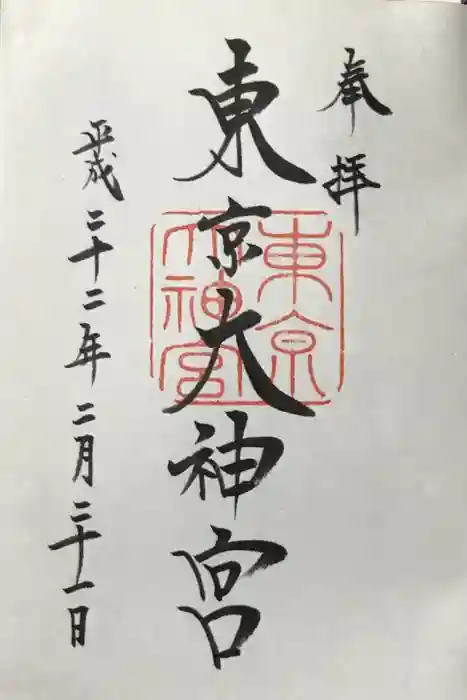 奉拝
東京大神宮
東京大神宮
平成二十二年二月二十一日